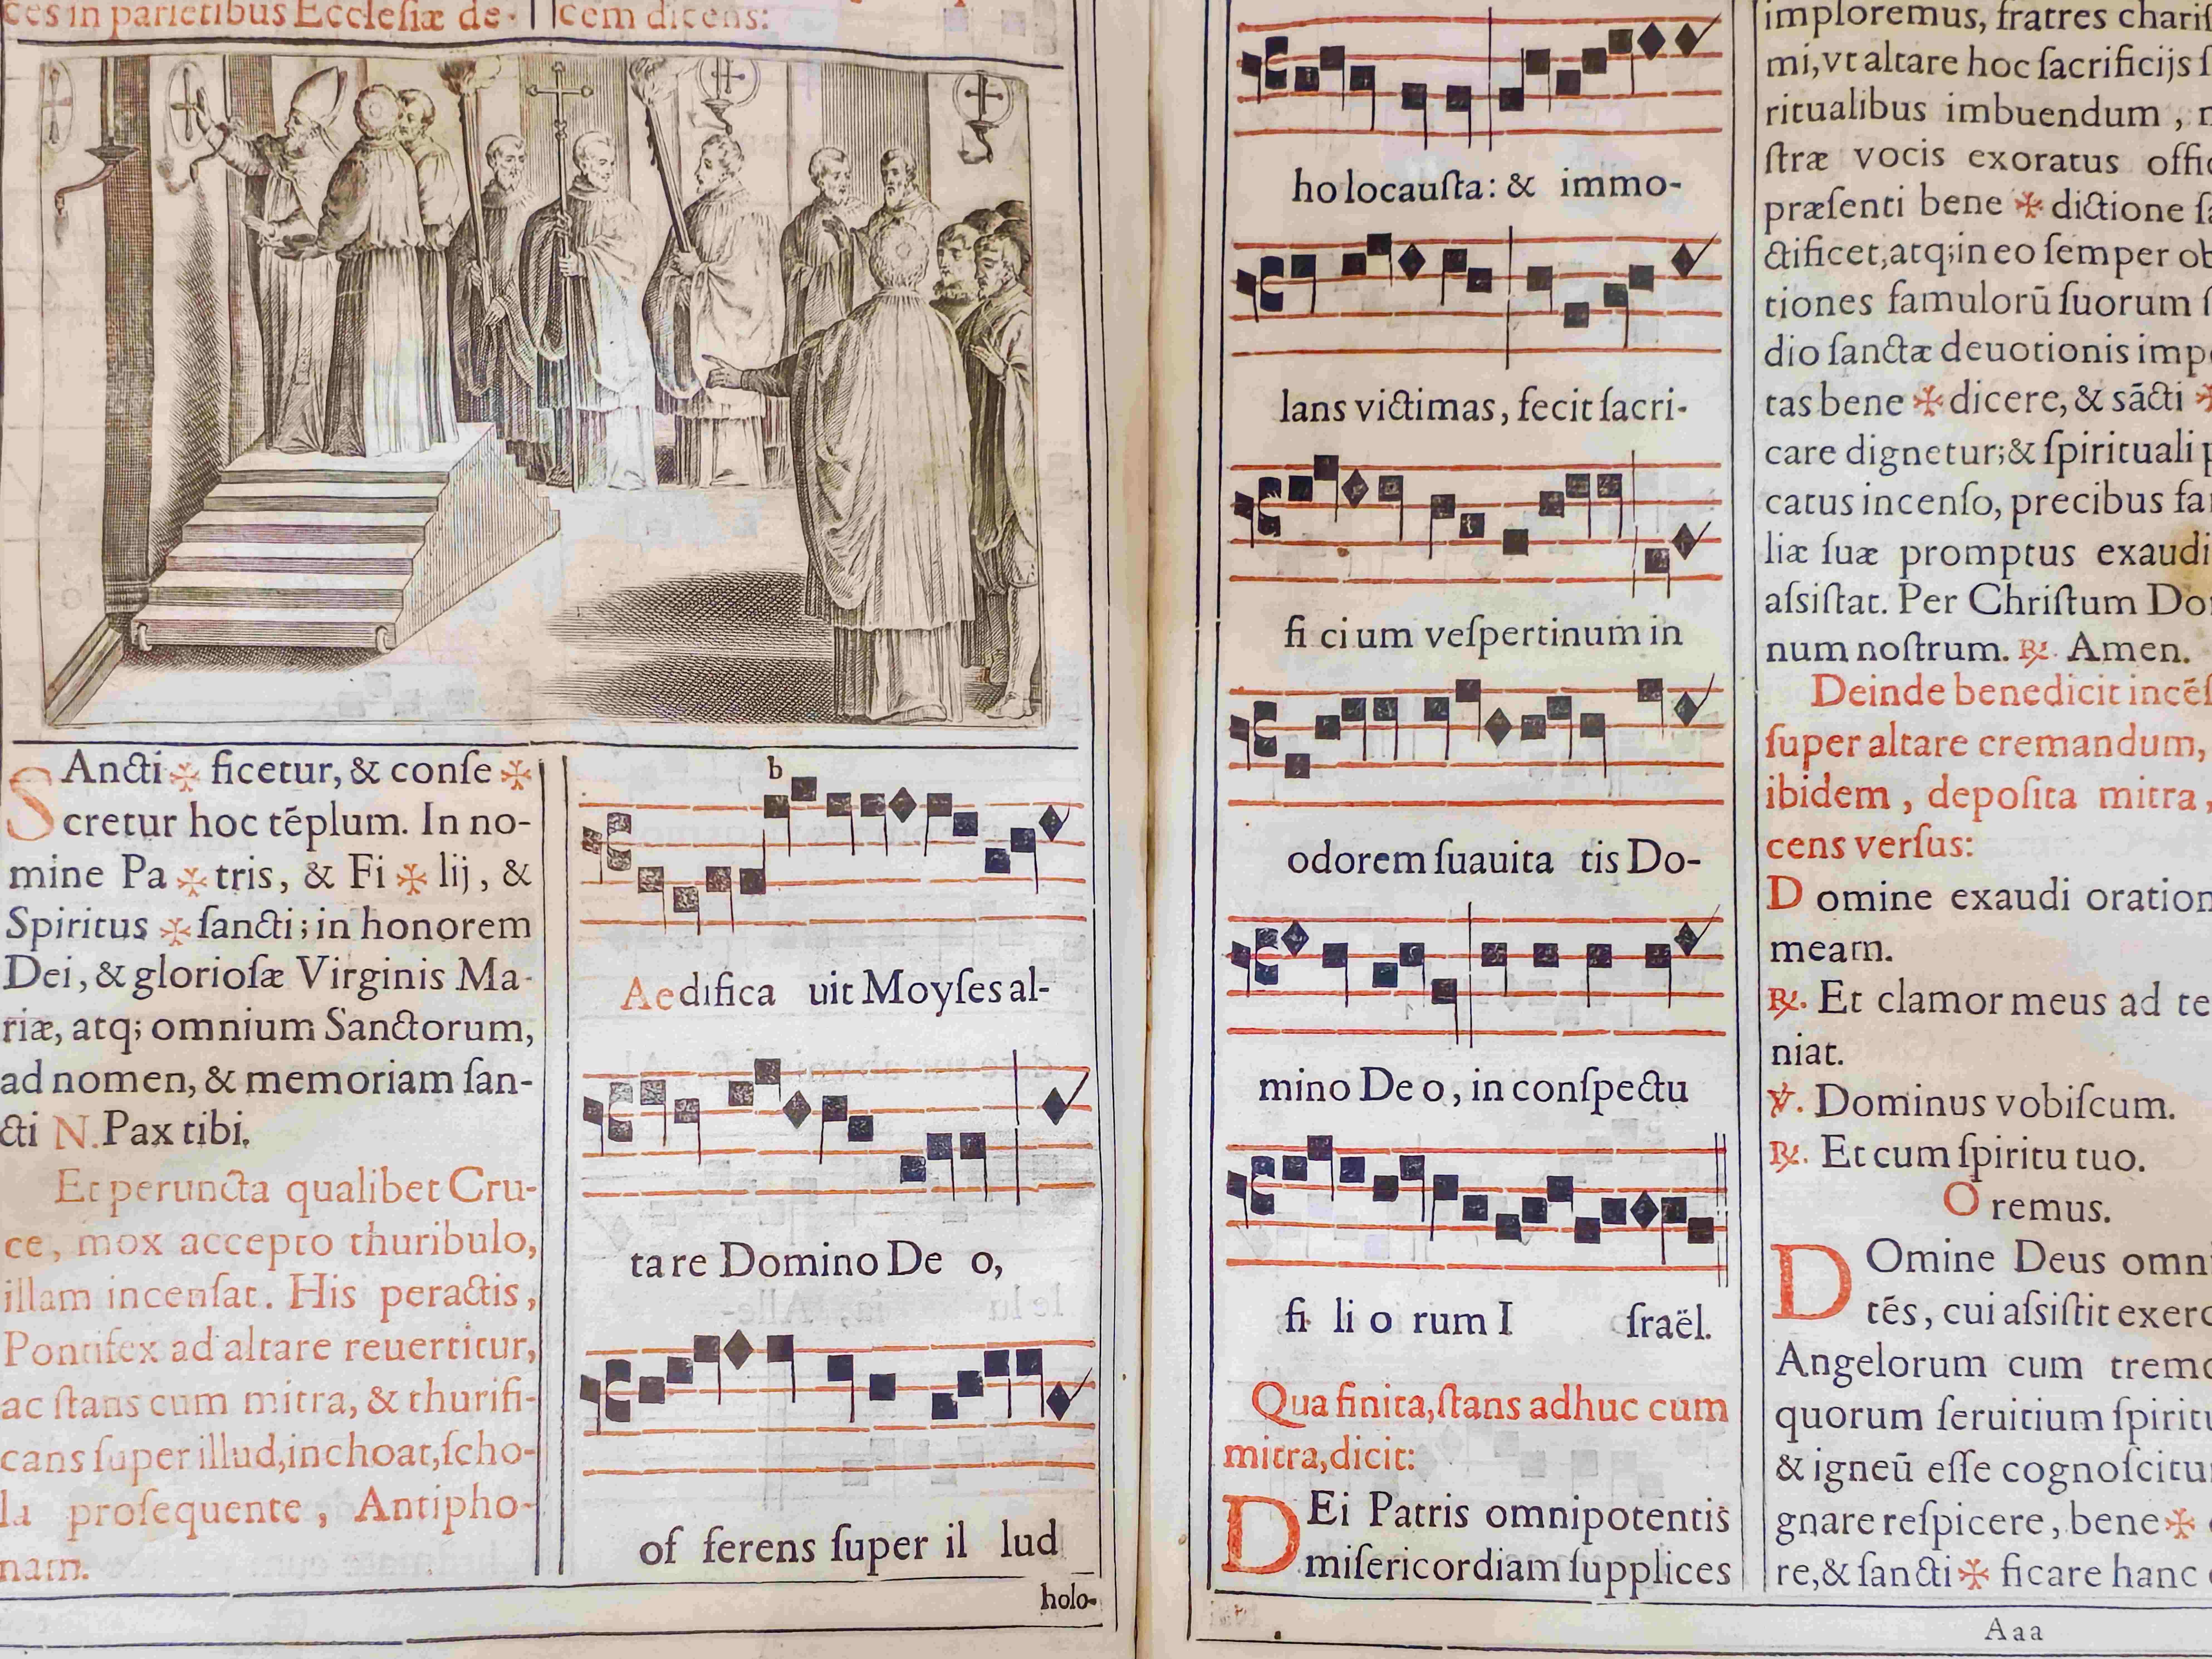 ces in parietibus Ecclesiæ de-
cem dicens:
SAncti ✠ ficetur, & conſe ✠
cretur hoc tēplum. In no-
mine Pa ✠ tris, & Fi ✠ lij, &
Spiritus ✠ ſancti; in honorem
Dei, & glorioſæ Virginis Ma-
riæ, atq; omnium Sanctorum,
ad nomen, & memoriam ſan-
cti N. Pax tibi.
Et peruncta qualibet Cru-
ce, mox accepto thuribulo,
illam incenſat. His peractis,
Pontifex ad altare reuertitur,
ac ſtans cum mitra, & thurifi-
cans ſuper illud, inchoat, ſcho-
la proſequente, Antipho-
nam.
b
Aedifica uit Moyſes al-
tare Domino De o,
of ferens ſuper il lud
holo-
ho locauſta: & immo-
lans victimas, fecit ſacri-
fi ci um veſpertinum in
odorem ſuauita tis Do-
mino De o, in conſpectu
fi li o rum I ſraël.
Qua finita, ſtans adhuc cum
mitra, dicit:
DEi Patris omnipotentis
miſericordiam ſupplices
imploremus, fratres chariſ
mi, vt altare hoc ſacrificijs ſ
ritualibus imbuendum,
ſtræ vocis exoratus offi
præſenti bene ✠ dictione ſa
ctificet, atq; in eo ſemper ob
tiones famulorū ſuorum ſ
dio ſanctæ deuotionis imp
tas bene ✠ dicere, & sācti ✠
care dignetur; & ſpirituali p
catus incenſo, precibus fa
liæ ſuæ promptus exaudi
aſsiſtat. Per Chriſtum Do
num noſtrum. ℟. Amen.
Deinde benedicit incēſ
ſuper altare cremandum,
ibidem, depoſita mitra,
cens verſus:
Domine exaudi oration
meam.
℟. Et clamor meus ad te
niat.
℣. Dominus vobiſcum.
℟. Et cum ſpiritu tuo.
Oremus.
DOmine Deus omni
tēs, cui aſsiſtit exerc
Angelorum cum tremo
quorum ſeruitium ſpiritu
& igneū eſſe cognoſcitu
gnare reſpicere, bene ✠
re, & ſancti ✠ ficare hanc
Aaa